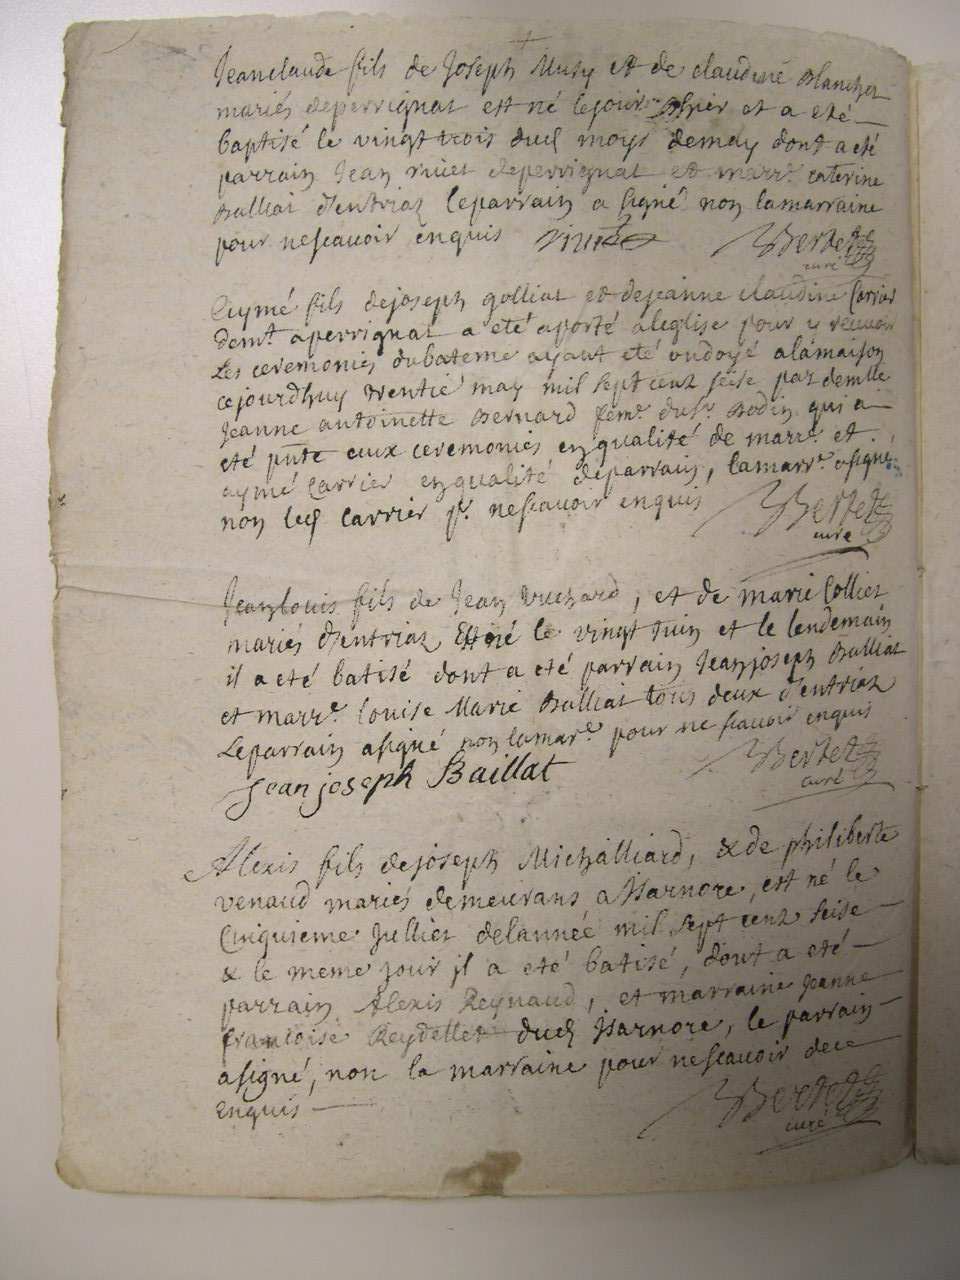 Jeanclaude fils de Joseph Musy et de claudine Blanchet
mariés deperrignat est né lejour d'hier et a eté
baptisé le vingt trois dud moys demay dont a eté
parrain Jean deperrignat et marr.e caterine
Balliat d'entriat leparrain a signé non lamarraine
pour nescavoir enquis Bertet
curé
Aymé fils dejoseph golliat et dejeanne claudine Carrier
dem.t aperrignat a eté aporté aleglise pour y recevoir
Les ceremonies dubateme ayant eté ondoyé alamaison
cejourdhuy trentie may mil sept cent seise par demlle
Jeanne antoinette Bernard fem.e dus.r Bodin qui a
eté pnte aux ceremonies enqualité de marr.e et
aymé Carrier enqualité deparrain, lamarr.e asigné
non led Carrier p.r nescavoir enquis Bertet
curé
Jeanlouis fils de Jean vuchard, et de marie Colliet
mariés d'entriat Est né le vingt Juin et le lendemain
il a eté batisé dont a eté parrain Jeanjoseph Balliat
et marr.e Louise Marie Balliat tous deux d'entriat
Leparrain asigné non lamar.e pour ne scavoir enquis
Jean joseph Baillat Bertet
curé
Alexis fils dejoseph Michalliard, & de philiberte
venaud mariés demeurans a Isarnore, est né le
Cinquieme Julliet delannée mil sept cent seise
& le meme jour il a eté batisé, dont a eté
parrain Alexis Reynaud, et marraine Jeanne
francoise Reydellet dud Isarnore, le parrain
asigné, non la marraine pour nescavoir dece
enquis Bertet
curé